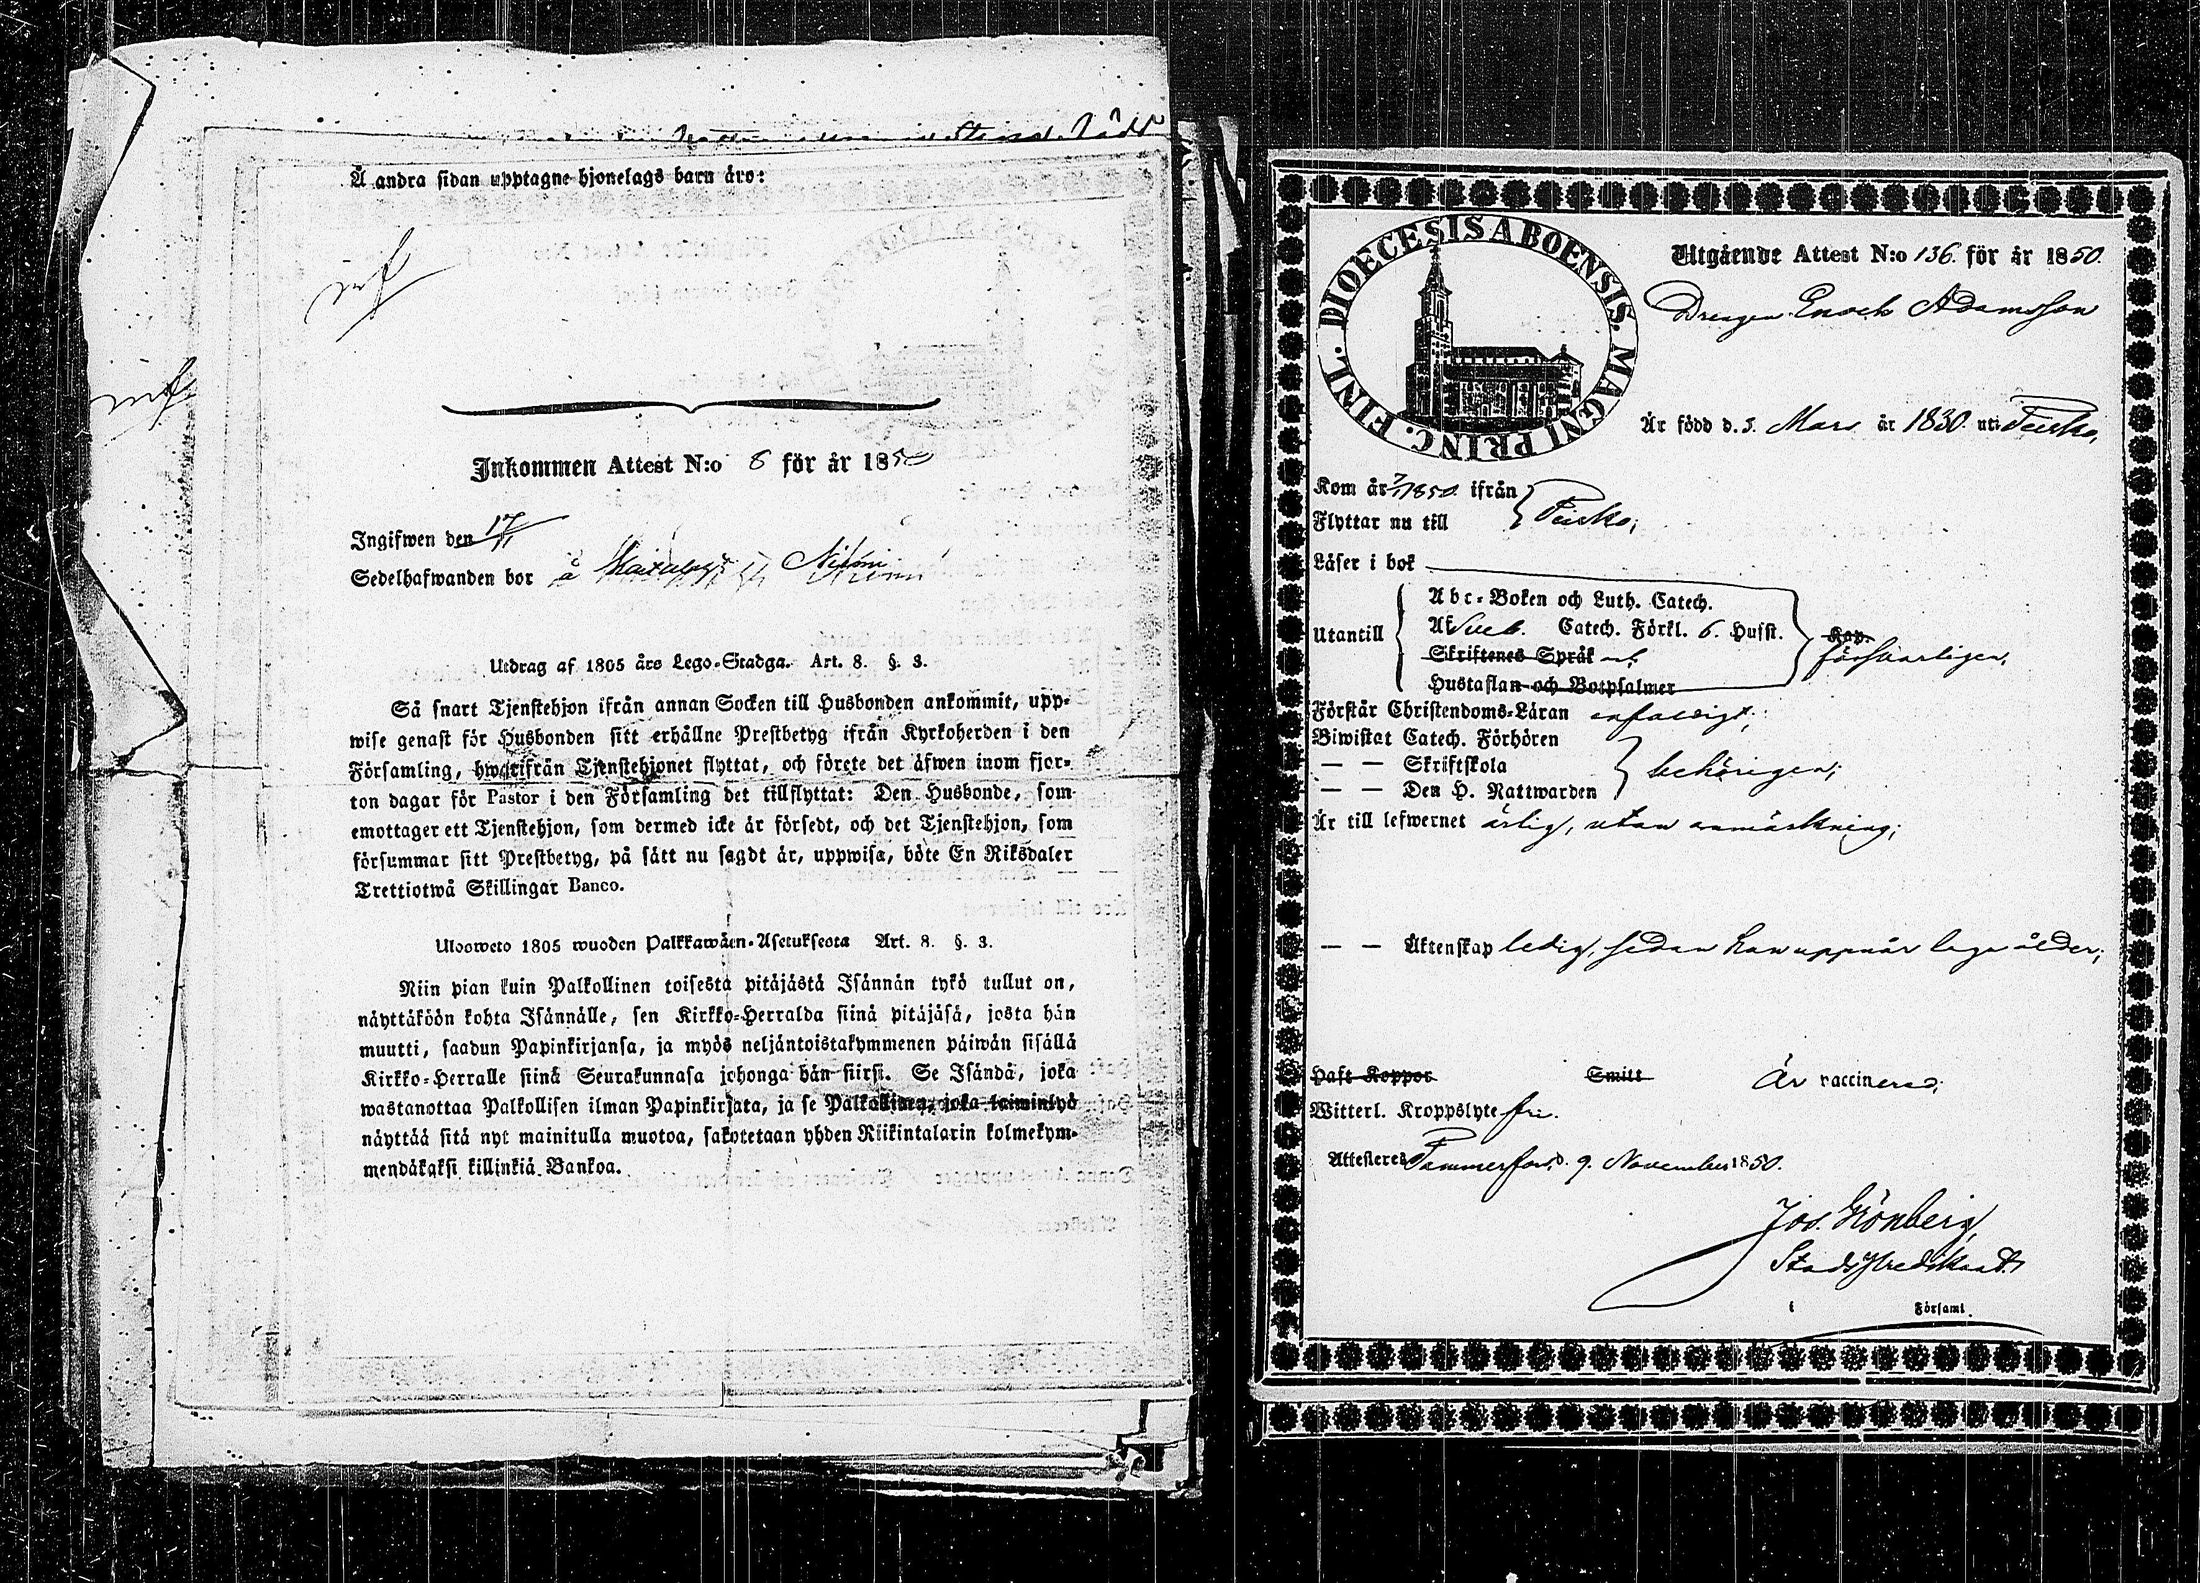 Å andra sidan upptagne hjonelags barn äro:
Inkommen Attest N:o 8 för år 1850
Ingifwen den 17/11
Sedelhafwanden bor å Niemi
Utdrag af 1805 års Lego-Stadga. Art. 8. §. 3.
Så snart Tjenstehjon ifrån annan Socken till Husbonden ankommit, upp-
wise genast för Husbonden sitt erhållne Prestbetyg ifrån Kyrkoherden i den
Församling, hwarifrån Tjenstehjonet flyttat, och förete det äfwen inom fjor-
ton dagar för Pastor i den Församling det tillflyttat: Den Husbonde, som
emottager ett Tjenstehjon, som dermed icke är försedt, och det Tjenstehjon, som
försummar sitt Prestbetyg, på sätt nu sagdt är, uppwisa, böte En Riksdaler
Trettiotwå Skillingar Banco.
Uloosweto 1805 wuoden Palkkawäen-Asetuksesta Art. 8. §. 3.
Niin pian kuin Palkollinen toisesta pitäjästä Isännän tykö tullut on,
näyttäköön kohta Isännälle, sen Kirkko-Herralda siinä pitäjäsä, josta hän
muutti, saadun Papinkirjansa, ja myös neljäntoistakymmenen päiwän sisällä
Kirkko-Herralle siinä Seurakunnasa johonga hän siirsi. Se Isändä, joka
wastanottaa Palkollisen ilman Papinkirjata, ja se Palkollinen, joka laiminlyö
näyttää sitä nyt mainitulla muotoa, sakotetaan yhden Riikintalarin kolmekym-
mendäkaksi killinkiä Bankoa.
DIOECESIS ABOENSIS. MAGNI PRINC. FINL.
Utgående Attest N:o 136. för år 1850.
Drengen Enoch Adamsson
Är född d. 5. Mars år 1830. uti Teisko,
Kom år 1850. ifrån
Flyttar nu till } Teisko;
Läser i bok
Utantill
Abc-Boken och Luth. Catech.
Af Sveb. Catech. Förkl. 6. Husst. Kap.
Skriftenes Språk försvarligen,
Hustaflan och Botpsalmer
Förstår Christendoms-Läran enfaldigt;
Biwistat Catech. Förhören
— — Skriftskola } behörigen;
— — Den H. Nattwarden
Är till lefwernet ärlig, utan anmärkning;
— — Äktenskap ledig, sedan han uppnår laga ålder;
Haft Koppor Smitt Är vaccinerad;
Witterl. Kroppslyte fri.
Attesteres Tammerfors, d. 9. November 1850.
Jos. Grönberg
Stads Predikant.
i Församl.